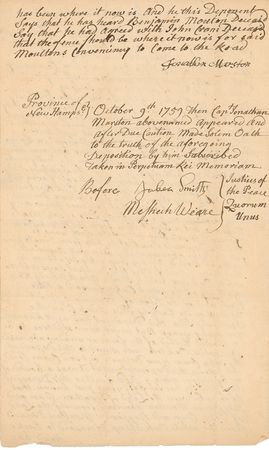 has been where it now is And he this Deponent
Says that he has heard Benjamin Moulton Deceasd
Say that he had agreed with John Deceasd
that the fence should be where it now is for said
Moultons Conveniency to Come to the Road
Jonathan Marston
Province of
New Hampr
October 9th 1759 Then Capt Jonathan
Marston abovenamed Appeared and
After Due Caution Made Solemn Oath
to the truth of the aforegoing
Deposition by him Subscribed
Taken in Perpetuam Rei Memoriam
Before Jabez Smith
Meshech Weare
Justices of
the Peace
Quorum
Unus